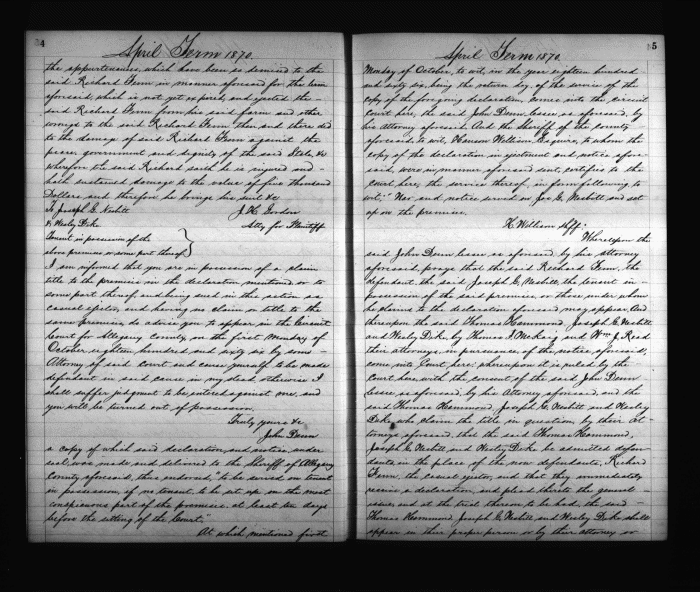 4
April Term 1870
the appurtenances, which have been so demised to the
said Richard Fenn in manner aforesaid for the term
aforesaid, which is not yet expired, and ejected the
said Richard Fenn from his said farm and other
wrongs to the said Richard Fenn then and there did
to the damage of said Richard Fenn against the
peace, government and dignity of the said State, &c
wherefore the said Richard saith he is injured and
hath sustained damage to the value of five thousand
Dollars and therefore he brings his suit &c
To Joseph G. Nesbitt J. H. Gordon
& Wesley Dike Atty for Plaintiff
Tenant in possession of the
above premises or some part thereof
I am informed that you are in possession of a claim
title to the premises in the declaration mentioned or to
some part thereof, and being sued in this action as
casual ejector, and having no claim or title to the
same premises, do advise you to appear in the Circuit
Court for Allegany County, on the first Monday of
October eighteen hundred and sixty six by some
Attorney of said Court and cause yourself to be made
defendant in said cause in my stead, otherwise I
shall suffer judgment to be entered against me, and
you will be turned out of possession.
Truly yours &c
John Dunn
a copy of which said declaration, and notice, under
seal, was made and delivered to the Sheriff of Allegany
County aforesaid, thus endorsed, "to be served on tenant
in possession, if no tenant, to be set up on the most
conspicuous part of the premises at least ten days
before the sitting of the Court."
At which mentioned first
5
April Term 1870.
Monday of October, to wit, in the year eighteen hundred
and sixty six, being the return day of the service of the
copy of the foregoing declaration, comes into the circuit
court here, the said John Dunn, lessee as aforesaid, by
his Attorney aforesaid. And the Sheriff of the County
aforesaid, to wit, Hanson Willison Esquire, to whom the
copy of the declaration in ejectment and notice afore-
said, were in manner aforesaid sent, certifies to the
Court here, the service thereof, in form following to
wit: " Nar and notice served on Jos G. Nesbitt and set
up on the premises.
H. Willison Shff.
Whereupon the
said John Dunn lessee as aforesaid by his attorney
aforesaid, prays that the said Richard Fenn, the
defendant, the said Joseph G. Nesbitt, the tenant in
possession of the said premises, or those under whom
he claims to the declaration foresaid, may appear. And
thereupon the said Thomas Hammond, Joseph G. Nesbitt
and Wesley Dike, by Thomas J. McKaig and Wm J. Read
their attorneys, in pursuance of the notice, aforesaid,
come into Court here: whereupon it is ruled by the
Court here, with the consent of the said John Dunn
lessee as aforesaid, by his Attorney aforesaid, and the
said Thomas Hammond, Joseph G. Nesbitt and Wesley
Dike, who claim the title in question by their At-
torneys aforesaid, that the said Thomas Hammond,
Joseph G. Nesbitt and Wesley Dike be admitted defen-
dants in the place of the now defendants, Richard
Fenn, the casual ejector, and that they immediately
receive a declaration, and plead thereto the general
issue, and at the trial thereon to be had, the said
Thomas Hammond, Joseph G. Nesbitt and Wesley Dike shall
appear in their proper person or by their attorney or